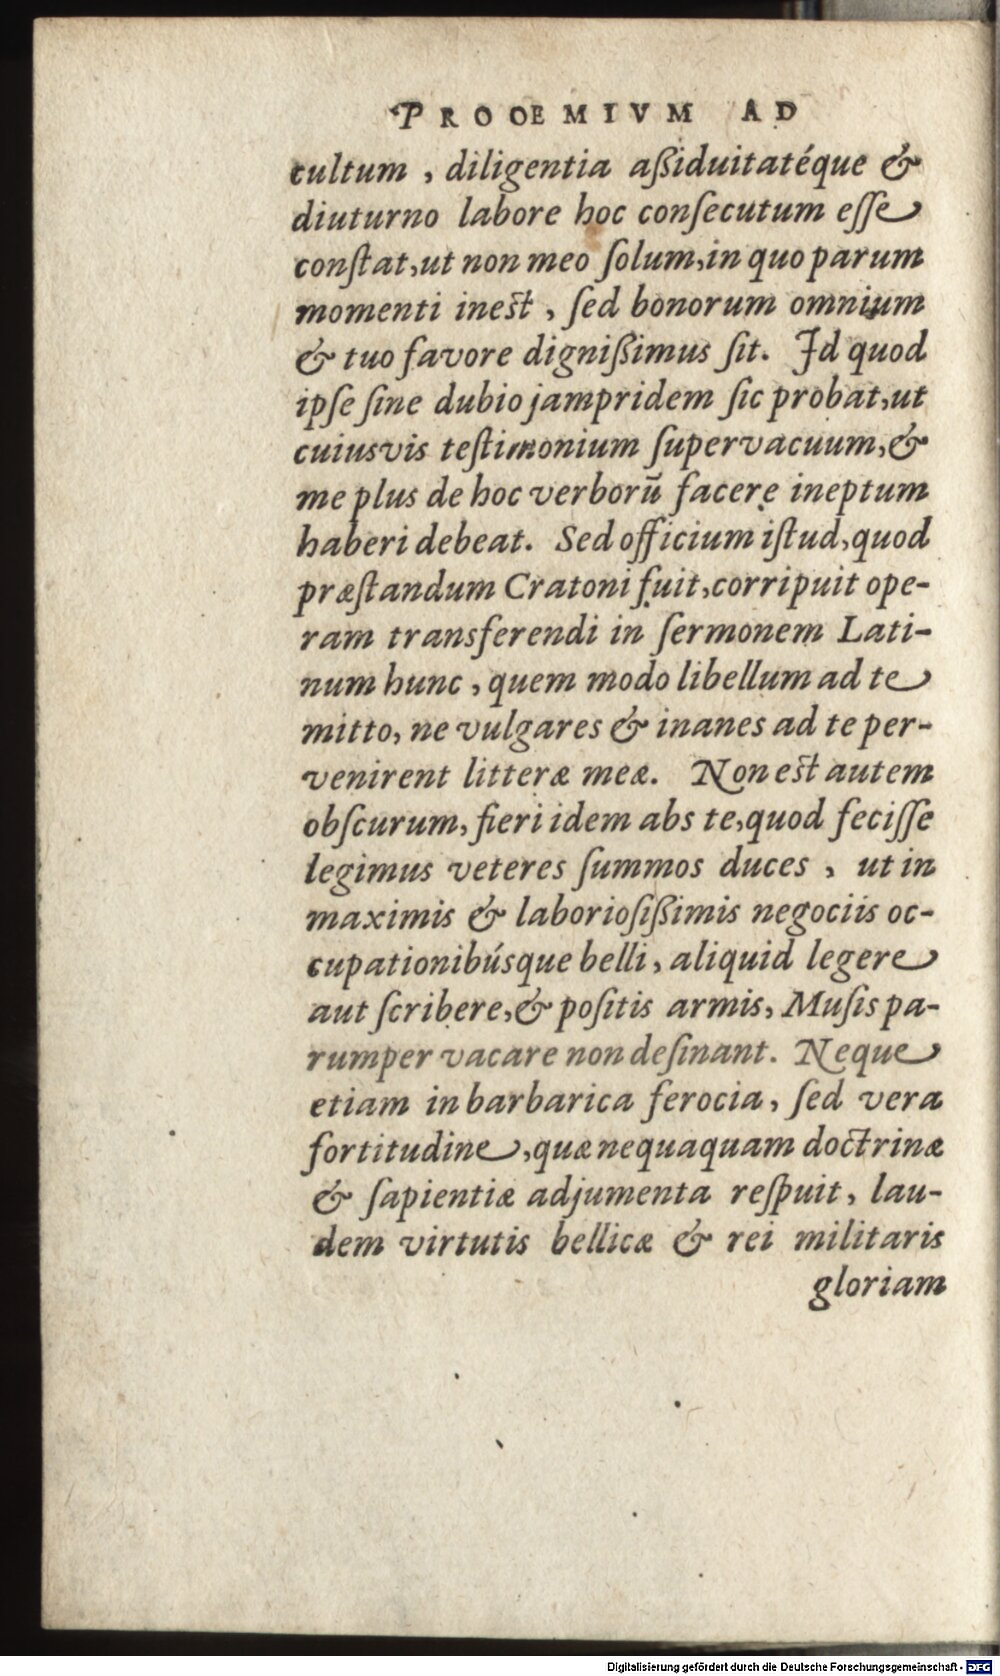 PROOEMIVM AD
cultum, diligentia aßiduitatéque &
diuturno labore hoc conſecutum eſſe
conſtat, ut non meo ſolum, in quo parum
momenti ineſt, ſed bonorum omnium
& tuo favore dignißimus ſit. Id quod
ipſe ſine dubio jampridem ſic probat, ut
cuiusvis teſtimonium ſupervacuum, &
me plus de hoc verborū facere ineptum
haberi debeat. Sed officium iſtud, quod
præſtandum Cratoni fuit, corripuit ope-
ram transferendi in ſermonem Lati-
num hunc, quem modo libellum ad te
mitto, ne vulgares & inanes ad te per-
venirent litteræ meæ. Non eſt autem
obſcurum, fieri idem abs te, quod feciſſe
legimus veteres ſummos duces, ut in
maximis & laborioſißimis negociis oc-
cupationibúsque belli, aliquid legere
aut ſcribere, & poſitis armis, Muſis pa-
rumper vacare non deſinant. Neque
etiam in barbarica ferocia, ſed vera
fortitudine, quæ nequaquam doctrinæ
& ſapientiæ adjumenta reſpuit, lau-
dem virtutis bellicæ & rei militaris
gloriam
Digitalisierung gefördert durch die Deutsche Forschungsgemeinschaft - DFG